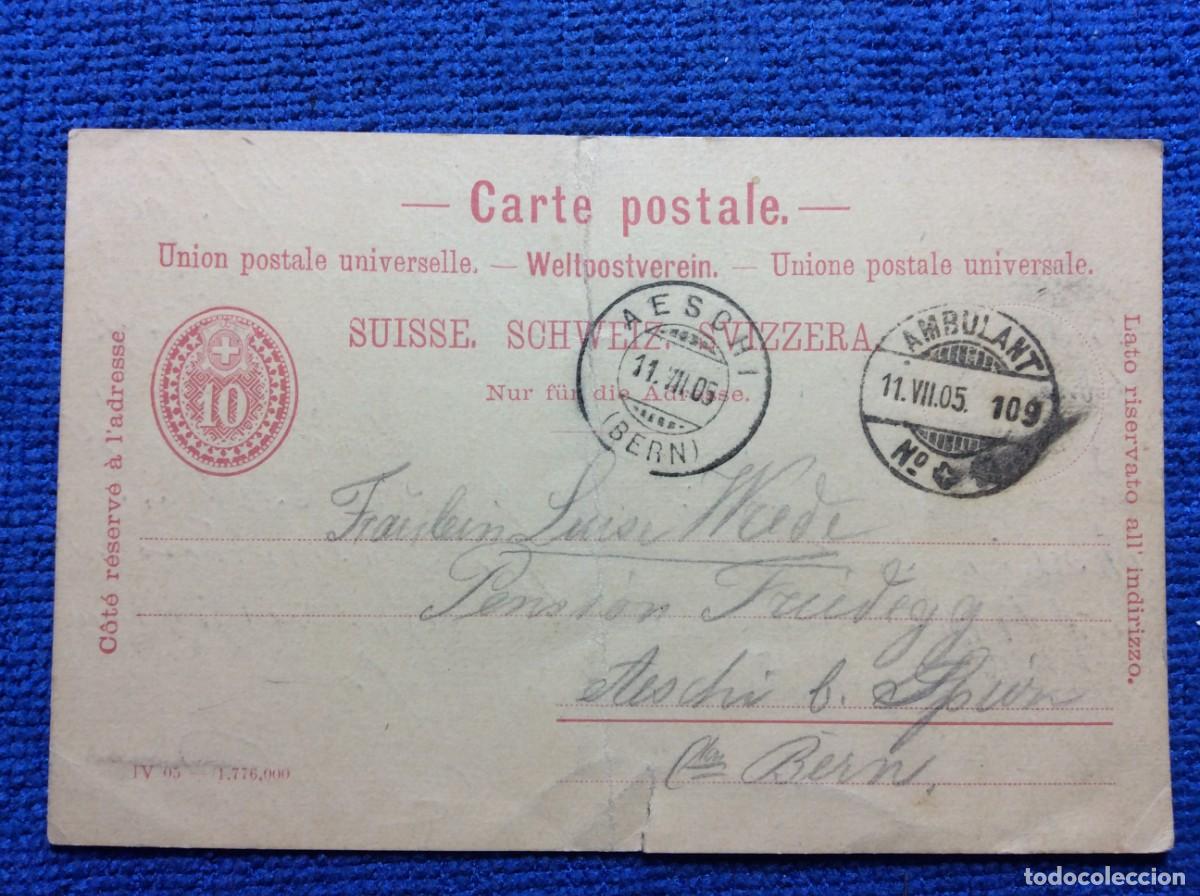 — Carte postale. —
Union postale universelle. — Weltpostverein. — Unione postale universale.
SUISSE. SCHWEIZ. SVIZZERA.
Nur für die Adresse.
10
Côté réservé à l'adresse.
Lato riservato all' indirizzo.
AESCHI
11. VII. 05
(BERN)
AMBULANT
11. VII. 05. 109
No
Fräulein Luise Wrede
Pension Friedegg
Aeschi b. Spiez
Bern.
IV 05 — 1.776,000
todocoleccion